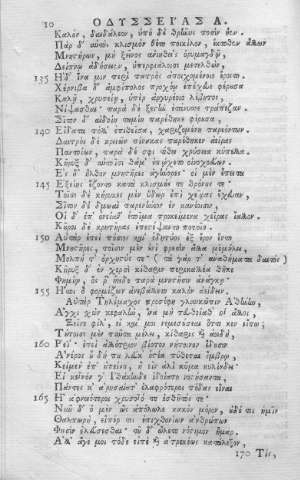 10 ΟΔΥΣΣΕΙΑΣ Α.
Καλὸν, δαιδάλεον, ὑπὸ δὲ θρῆνυς ποσὶν ἦεν.
Πὰρ δ' αὐτὸς κλισμὸν θέτο ποικίλον, ἔκτοθεν ἄλλων
Μνηστήρων, μὴ ξεῖνος ἀνιηθεὶς ὀρυμαγδῷ,
Δείπνῳ ἀδήσειεν, ὑπερφιάλοισι μετελθὼν,
135 Ἠδ' ἵνα μιν περὶ πατρὸς ἀποιχομένοιο ἔροιτο.
Χέρνιβα δ' ἀμφίπολος προχόῳ ἐπέχευε φέρουσα
Καλῇ, χρυσείῃ, ὑπὲρ ἀργυρέοιο λέβητος,
Νίψασθαι· παρὰ δὲ ξεστὴν ἐτάνυσσε τράπεζαν.
Σῖτον δ' αἰδοίη ταμίη παρέθηκε φέρουσα,
140 Εἴδατα πόλλ' ἐπιθεῖσα, χαριζομένη παρεόντων.
Δαιτρὸς δὲ κρειῶν πίνακας παρέθηκεν ἀείρας
Παντοίων, παρὰ δέ σφι τίθει χρύσεια κύπελλα.
Κῆρυξ δ' αὐτοῖσι θάμ' ἐπῴχετο οἰνοχοεύων.
Ἐς δ' ἦλθον μνηστῆρες ἀγήνορες· οἱ μὲν ἔπειτα
145 Ἑξείης ἕζοντο κατὰ κλισμούς τε θρόνους τε·
Τοῖσι δὲ κήρυκες μὲν ὕδωρ ἐπὶ χεῖρας ἔχευαν,
Σῖτον δὲ δμωαὶ παρενήεον ἐν κανέοισιν·
Οἱ δ' ἐπ' ὀνείαθ' ἑτοῖμα προκείμενα χεῖρας ἴαλλον.
Κοῦροι δὲ κρητῆρας ἐπεστέψαντο ποτοῖο.
150 Αὐτὰρ ἐπεὶ πόσιος καὶ ἐδητύος ἐξ ἔρον ἕντο
Μνηστῆρες, τοῖσιν μὲν ἐνὶ φρεσὶν ἄλλα μεμήλει,
Μολπή τ' ὀρχηστύς τε· (τὰ γάρ τ' ἀναθήματα δαιτός)
Κῆρυξ δ' ἐν χερσὶ κίθαριν περικαλλέα θῆκε
Φημίῳ, ὅς ῥ' ἤειδε παρὰ μνηστῆρσιν ἀνάγκῃ·
155 Ἤτοι ὁ φορμίζων ἀνεβάλλετο καλὸν ἀείδειν.
Αὐτὰρ Τηλέμαχος προσέφη γλαυκῶπιν Ἀθήνην,
Ἄγχι σχὼν κεφαλὴν, ἵνα μὴ πευθοίαθ' οἱ ἄλλοι,
Ξεῖνε φίλ', εἰ καί μοι νεμεσήσεαι ὅττι κεν εἴπω;
Τούτοισι μὲν ταῦτα μέλει, κίθαρις καὶ ἀοιδὴ,
160 Ῥεῖ'· ἐπεὶ ἀλλότριον βίοτον νήποινον ἔδουσιν
Ἀνέρος οὗ δή που λεύκ' ὀστέα πύθεται ὄμβρῳ,
Κείμεν' ἐπ' ἠπείρου, ἢ εἰν ἁλὶ κῦμα κυλίνδει·
Εἰ κεῖνόν γ' Ἰθάκηνδε ἰδοίατο νοστήσαντα,
Πάντες κ' ἀρησαίατ' ἐλαφρότεροι πόδας εἶναι
165 Ἢ ἀφνειότεροι χρυσοῖό τε ἐσθῆτός τε·
Νῦν δ' ὁ μὲν ὣς ἀπόλωλε κακὸν μόρον, οὐδέ τις ἡμῖν
Θαλπωρὴ, εἴπερ τις ἐπιχθονίων ἀνθρώπων
Φησὶν ἐλεύσεσθαι· τοῦ δ' ὤλετο νόστιμον ἦμαρ.
Ἀλλ' ἄγε μοι τόδε εἰπὲ καὶ ἀτρεκέως κατάλεξον,
170 Τίς,